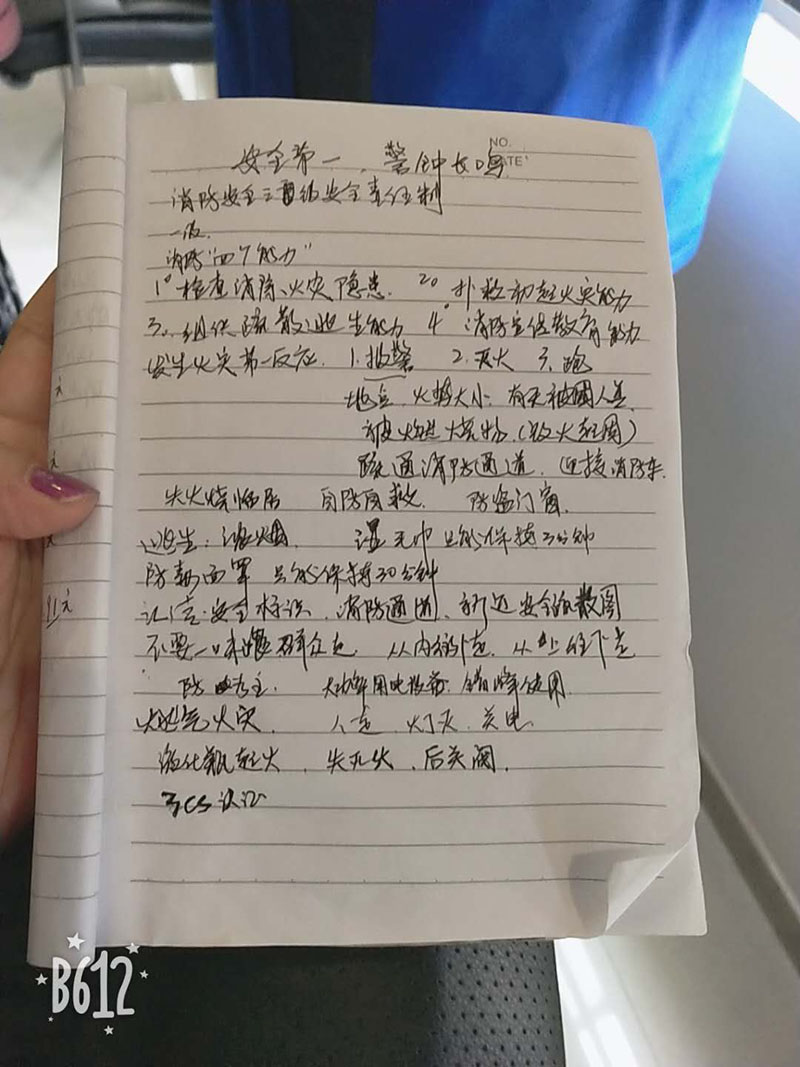 NO.
DATE
安全第一，警钟长鸣
消防安全三 级安全责任制
一级.
消防"四个能力"
1°检查消除火灾隐患. 2° 扑救初起火灾能力
3. 组织疏散逃生能力 4° 消防宣传教育能力
发生火灾第一反应. 1.报警 2.灭火 3.跑
地点 火势大小 有无被困人员
被燃烧物(及火起因)
疏通消防通道. 迎接消防车
失火烧 自防自救. 防盗门窗
逃生: 浓烟 湿毛巾 只能保持3分钟
防毒面罩 只能保持30分钟
认清:安全标识、消防通道、就近安全疏散图
不要一味跟群众走 从内往外走 从上往下走
防 为主. 大功率用电设备 错峰使用
燃气火灾. 人走. 灯灭. 关电.
液化瓶起火. 先灭火. 后关阀.
3CS认证
91
B612